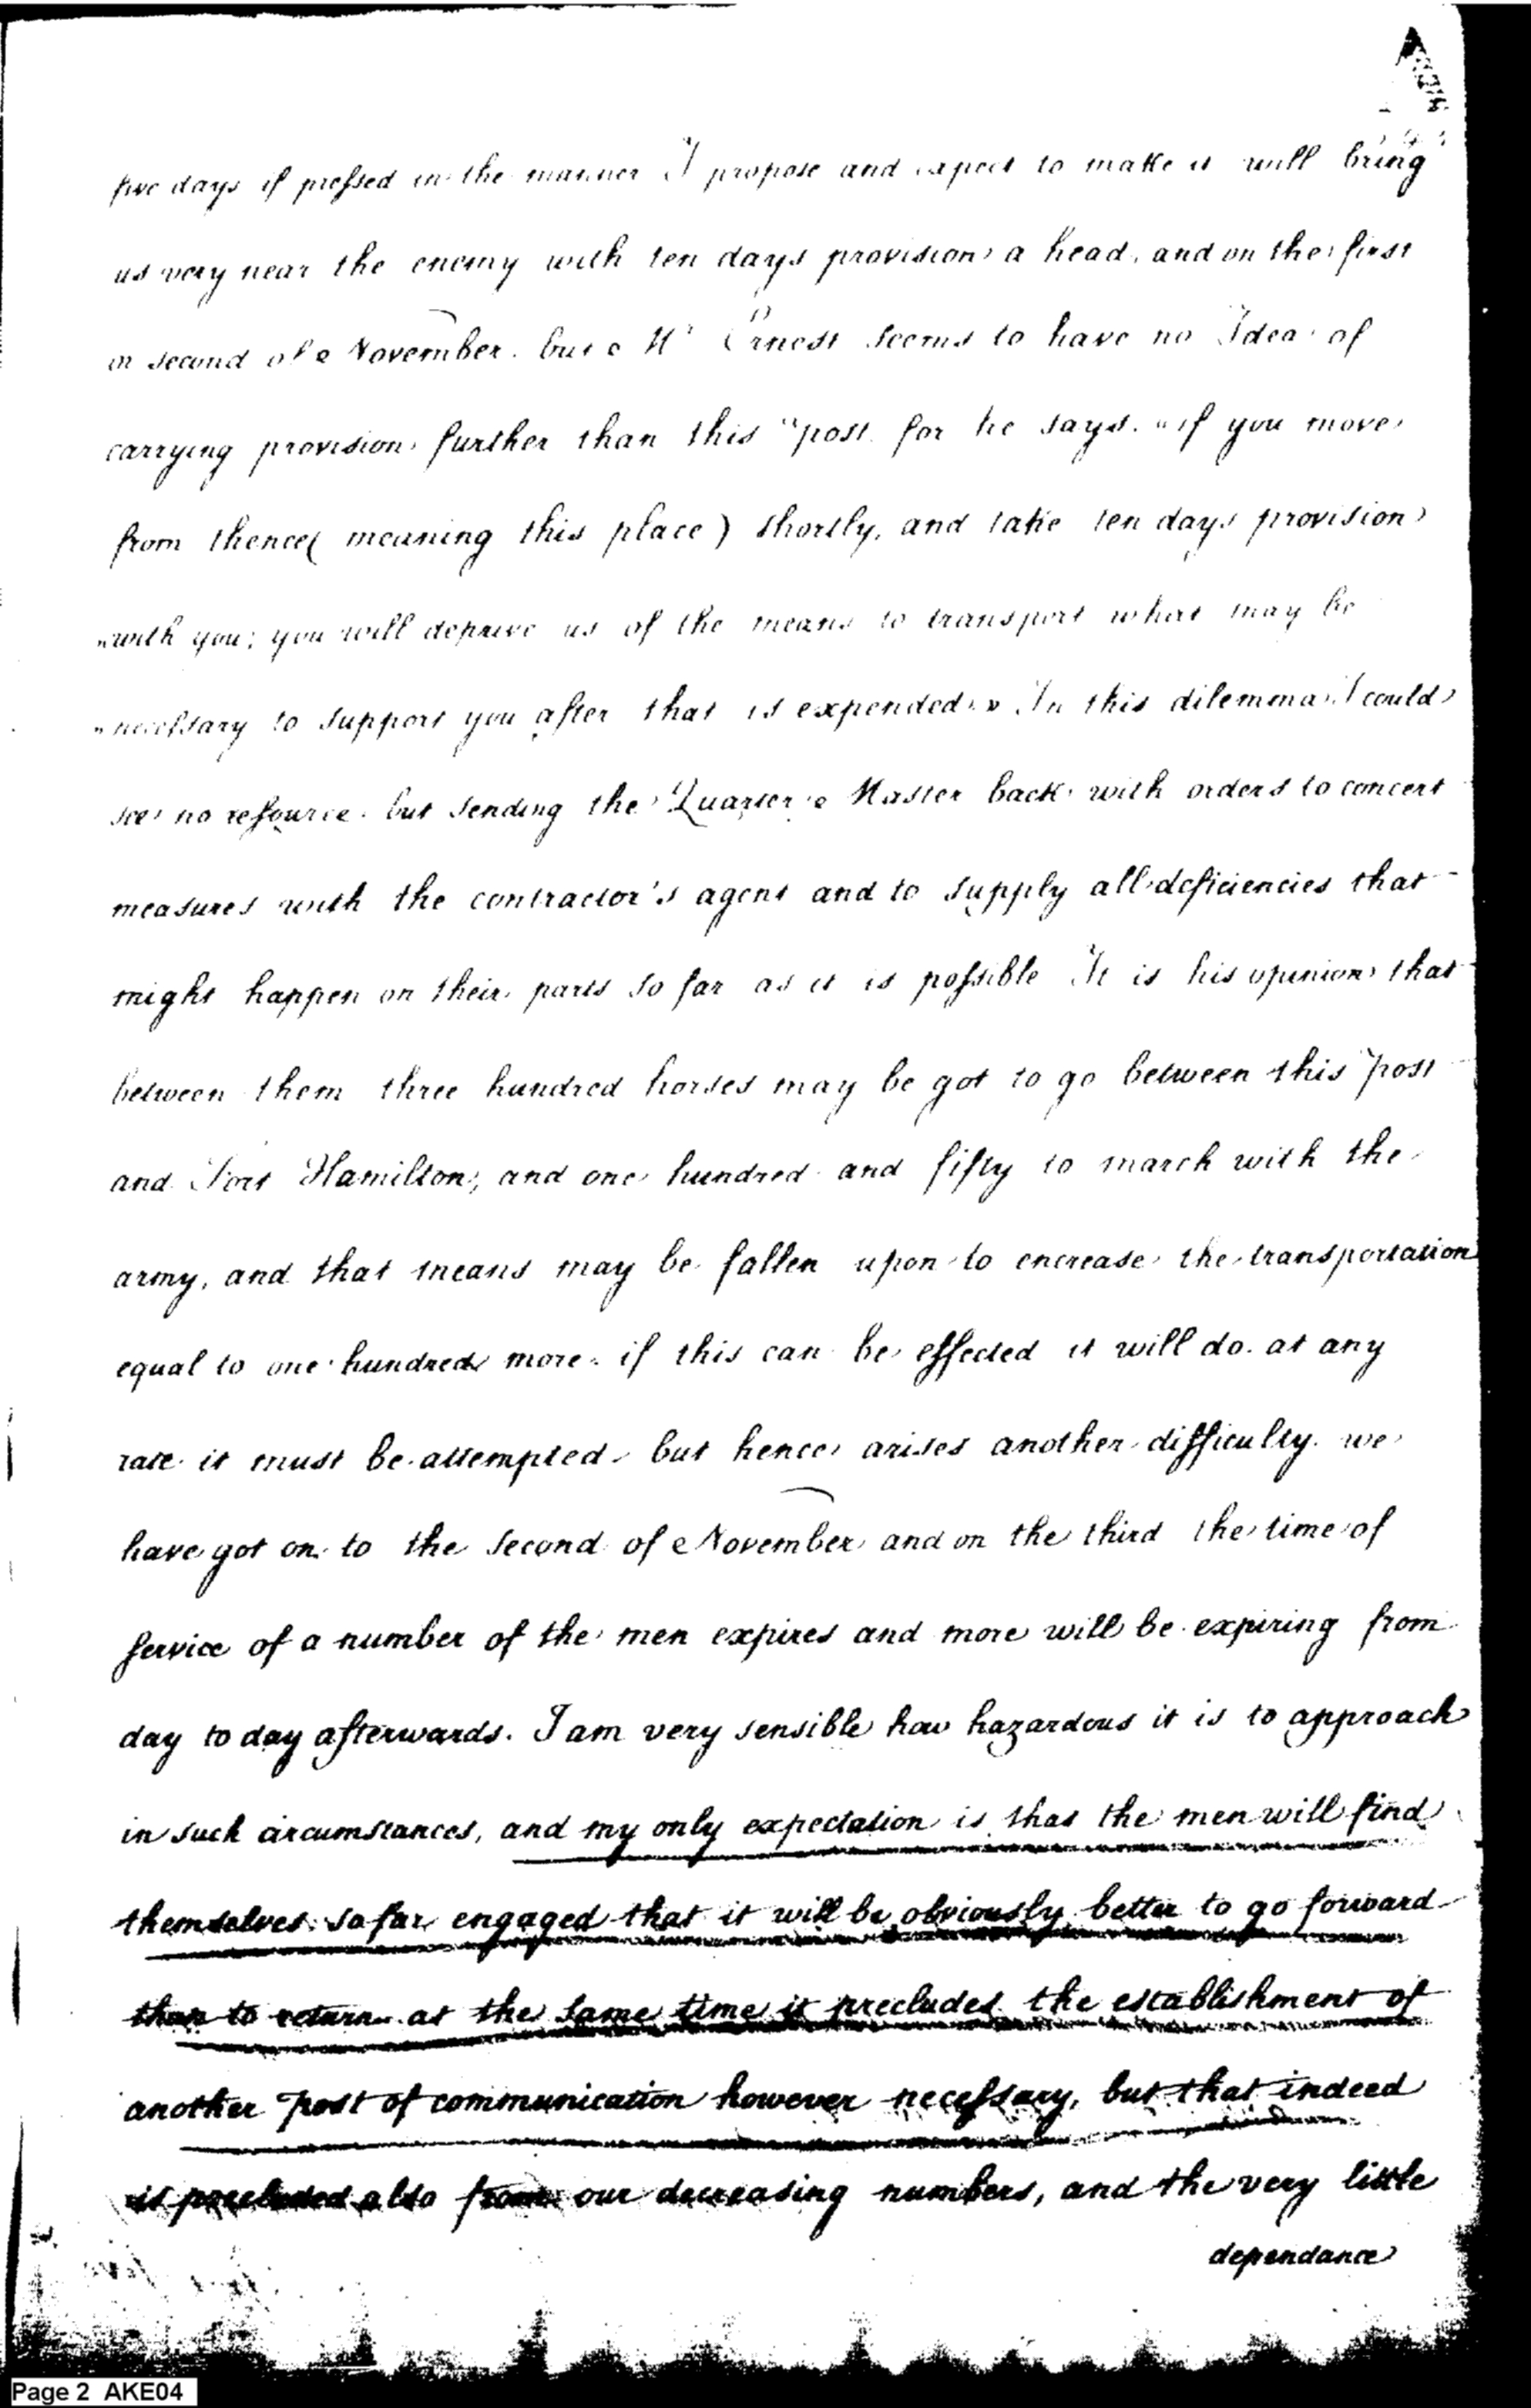 five days if pressed in the manner I propose and expect to make it will bring
us very near the enemy with ten days provision a head, and on the first
or second of November. but Mr Ernest seems to have no Idea of
carrying provision further than this post. for he says. "if you move
from thence( meaning this place) shortly, and take ten days provision
"with you; you will deprive us of the means to transport what may be
"necessary to support you after that is expended." In this dilemma I could
see no resource but sending the Quarter Master back with orders to concert
measures with the contractor's agent and to supply all deficiencies that
might happen on their parts so far as it is possible It is his opinion that
between them three hundred horses may be got to go between this post
and Fort Hamilton, and one hundred and fifty to march with the
army, and that means may be fallen upon to encrease the transportation
equal to one hundred more. if this can be effected it will do. at any
rate it must be attempted - but hence arises another difficulty. we
have got on to the second of November and on the third the time of
service of a number of the men expires and more will be expiring from
day to day afterwards. I am very sensible how hazardous it is to approach
in such circumstances, and my only expectation is that the men will find
themselves so far engaged that it will be obviously better to go forward
than to return at the same time it precludes the establishment of
another post of communication however necessary, but that indeed
is precluded also from our decreasing numbers, and the very little
dependance
Page 2 AKE04